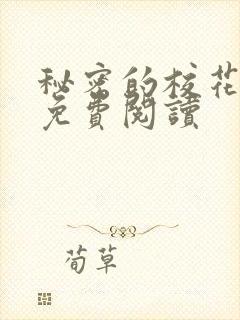 秘密的校花
免費閱讀
荀草